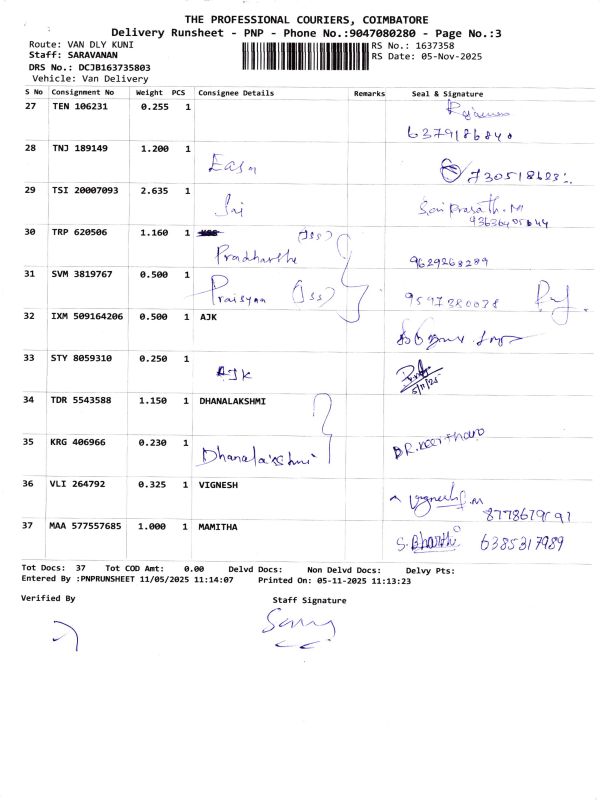 THE PROFESSIONAL COURIERS, COIMBATORE
Delivery Runsheet - PNP - Phone No.:9047080280 - Page No.:3
Route: VAN DLY KUNI
RS No.: 1637358
Staff: SARAVANAN
RS Date: 05-Nov-2025
DRS No.: DCJB163735803
Vehicle: Van Delivery
S No Consignment No Weight PCS Consignee Details Remarks Seal & Signature
27 TEN 106231 0.255 1
28 TNJ 189149 1.200 1
Easn
29 TSI 20007093 2.635 1
Jai
Sai Prasath. M
30 TRP 620506 1.160 1
(JSS)
9629268289
31 SVM 3819767 0.500 1
(JSS)
9597380078
32 IXM 509164206 0.500 1 AJK
33 STY 8059310 0.250 1
AJK
5/11/25
34 TDR 5543588 1.150 1 DHANALAKSHMI
35 KRG 406966 0.230 1
Dhanalakshmi
36 VLI 264792 0.325 1 VIGNESH
37 MAA 577557685 1.000 1 MAMITHA
S. Bharthi 6385317989
Tot Docs: 37 Tot COD Amt: 0.00 Delvd Docs: Non Delvd Docs: Delvy Pts:
Entered By :PNPRUNSHEET 11/05/2025 11:14:07 Printed On: 05-11-2025 11:13:23
Verified By Staff Signature